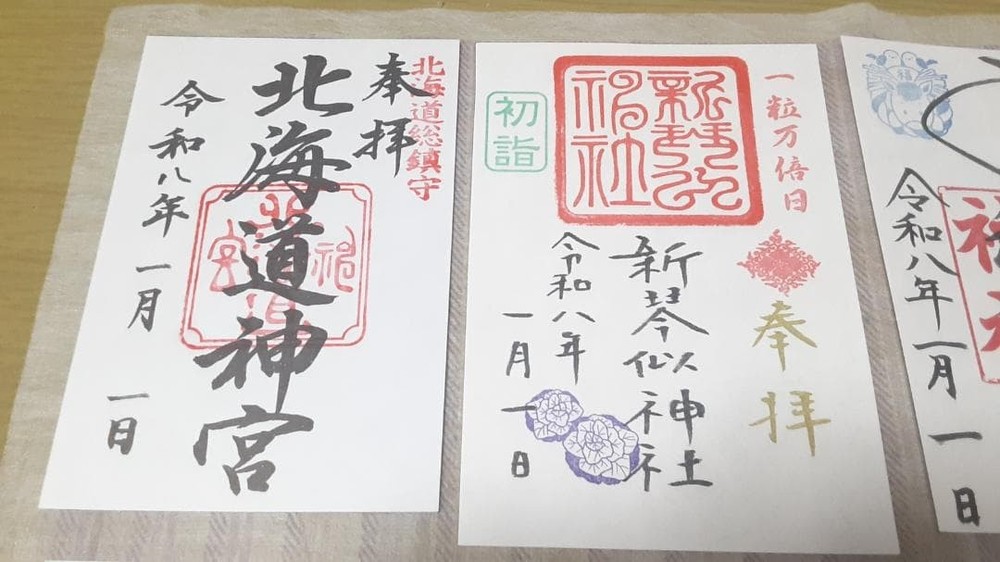 北海道総鎮守
奉拝
北海道神宮
令和八年 一月 一日
一粒万倍日
奉拝
初詣
新琴似神社
新琴似神社
令和八年
一月一日
福
令和八年一月一日